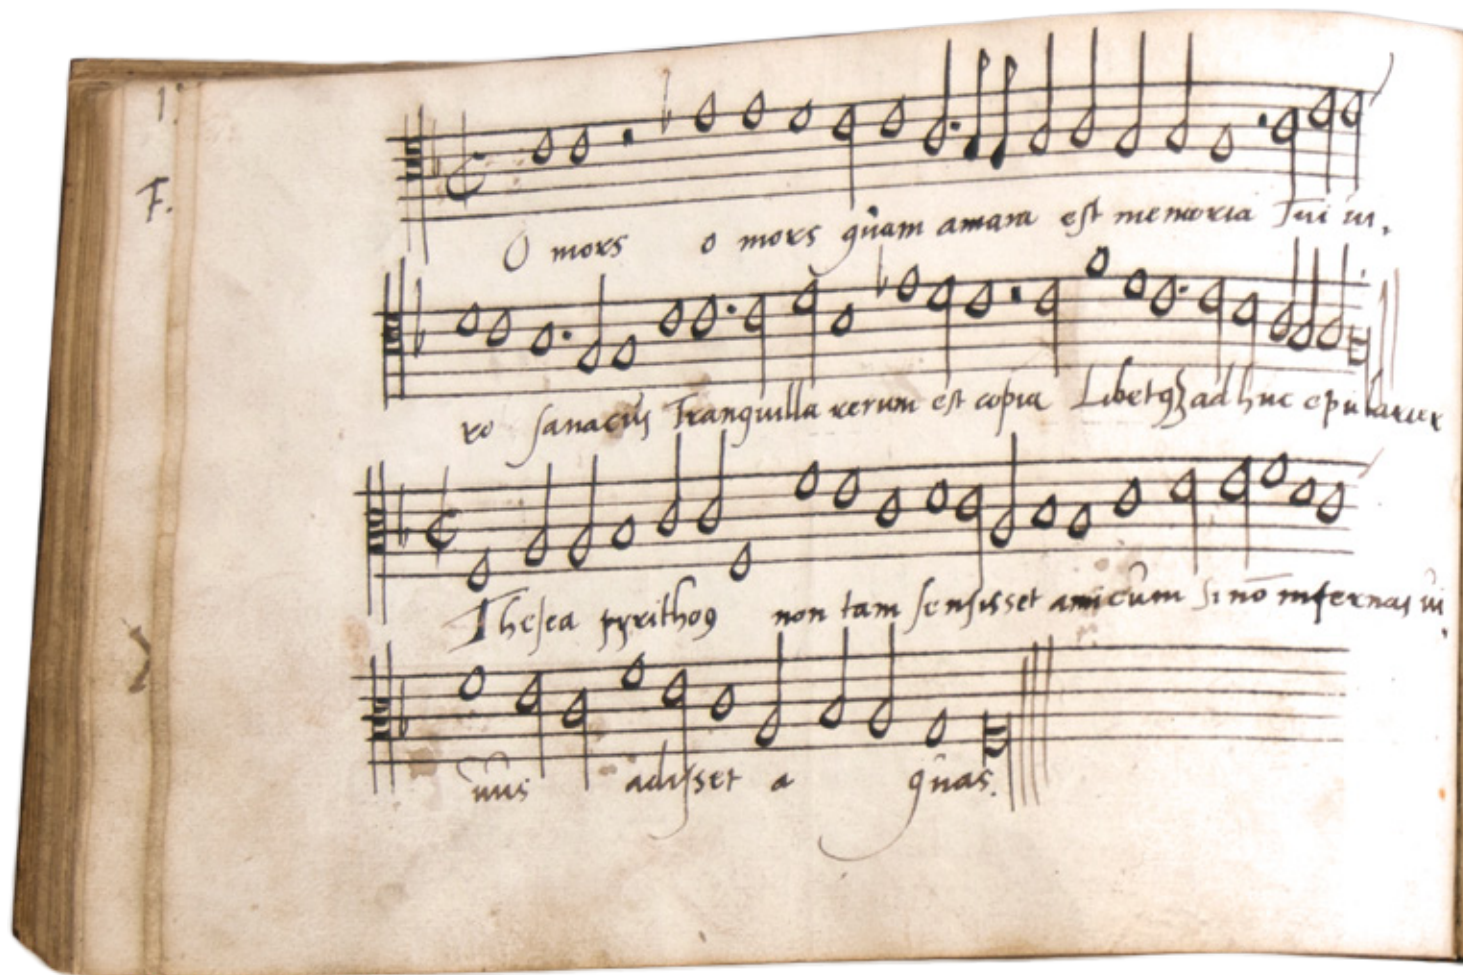 1.
F.
O mors o mors quam amara est memoria Tui ui,
ro Tranquilla rerum est copia Libetqȝ ad huc epularier
Thesea pyrithoꝯ non tam sensisset amicum si nō infernas ui,
uus adisset a quas.